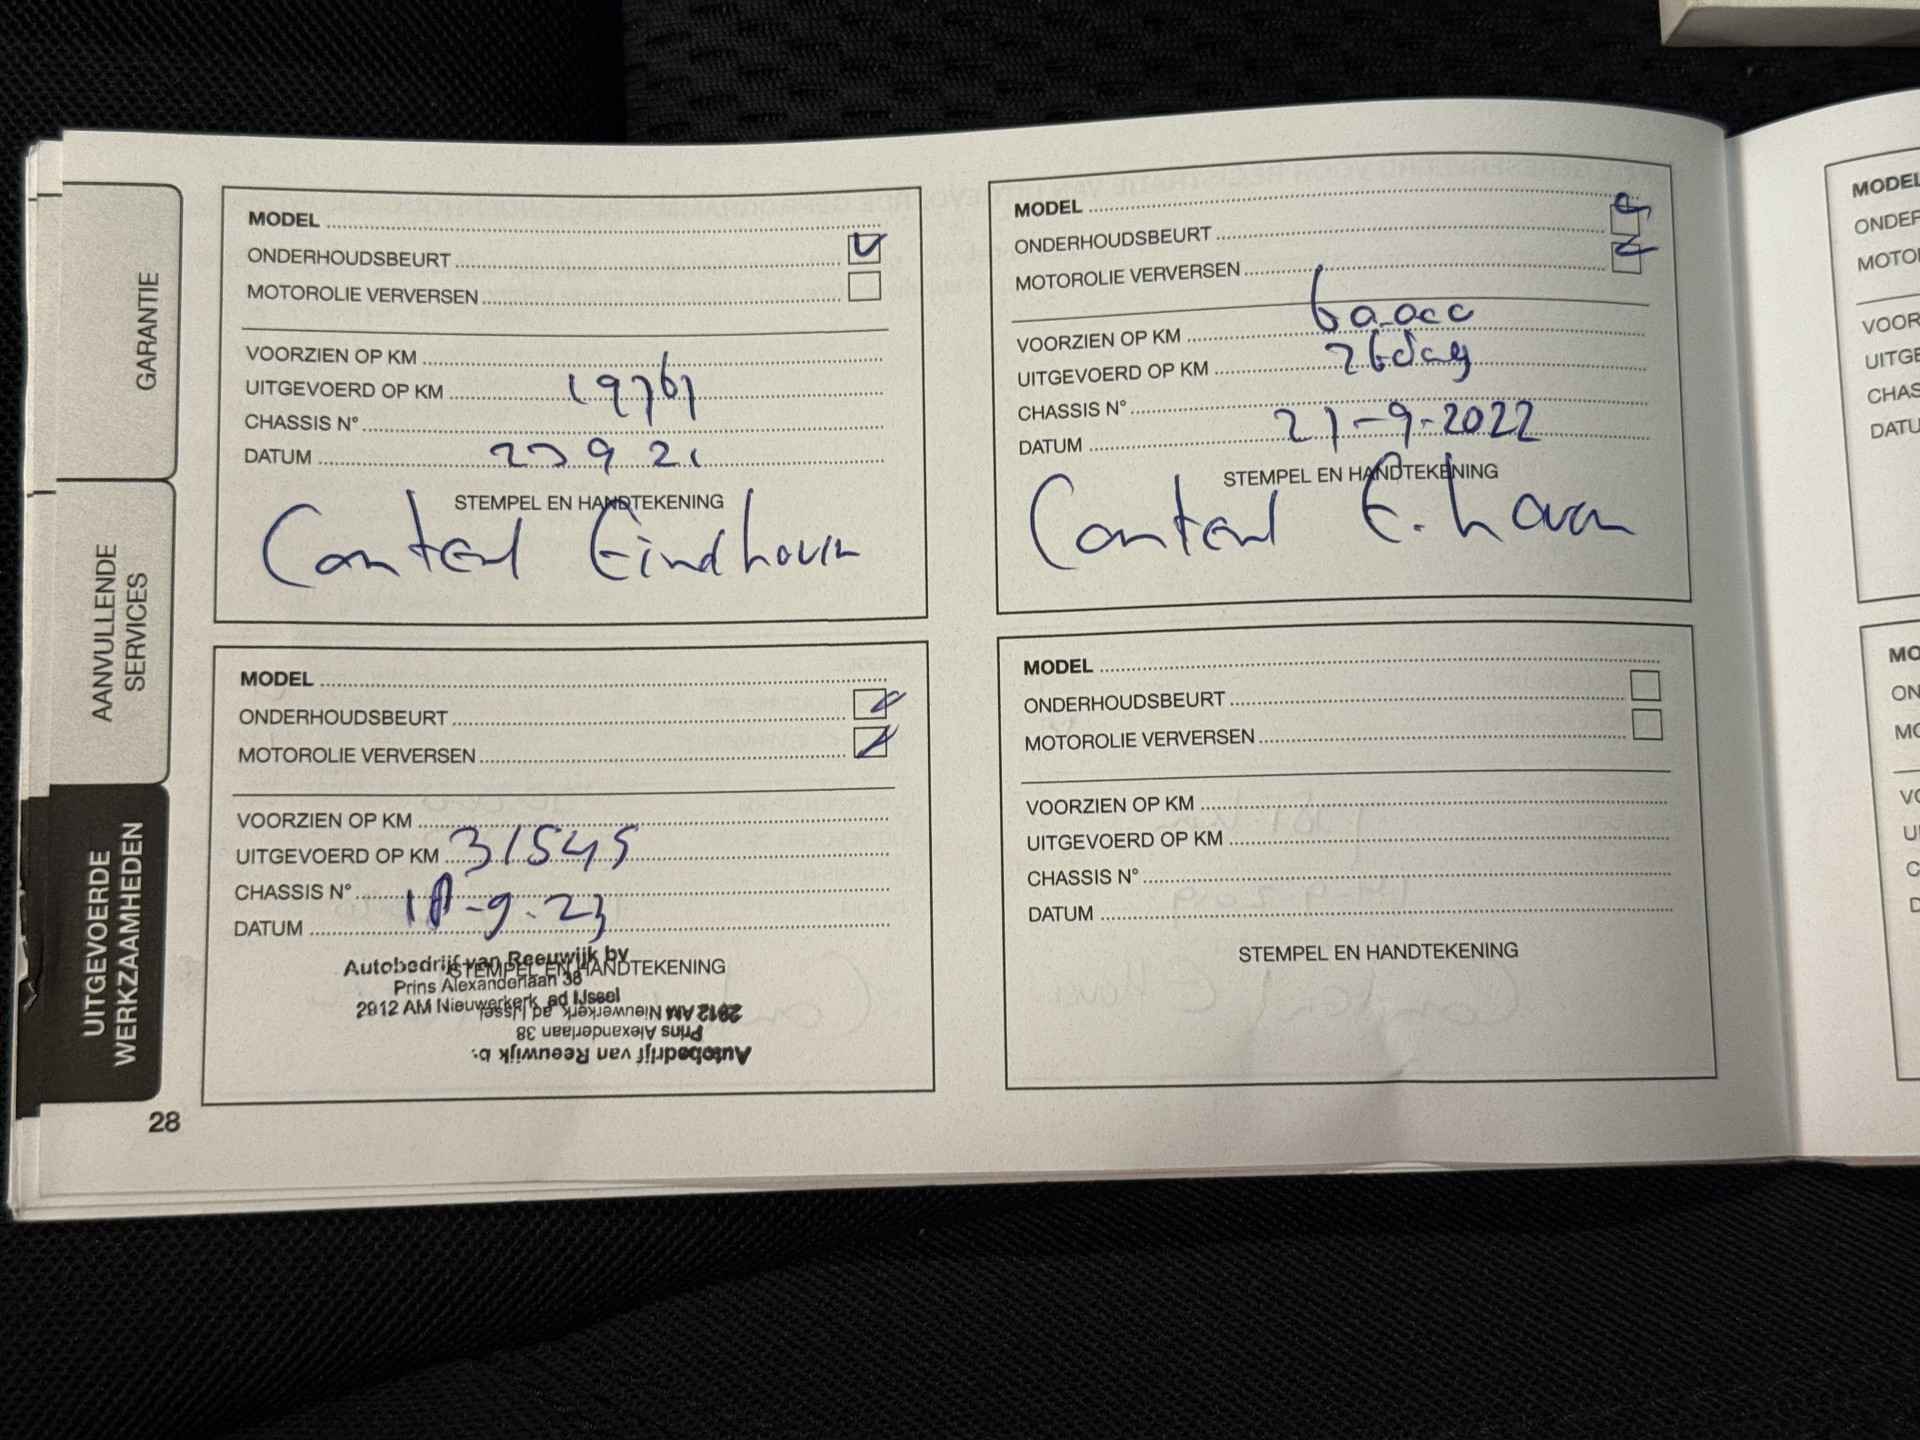 GARANTIE
AANVULLENDE
SERVICES
UITGEVOERDE
WERKZAAMHEDEN
MODEL
ONDERHOUDSBEURT
MOTOROLIE VERVERSEN
VOORZIEN OP KM
UITGEVOERD OP KM 19761
CHASSIS N°
DATUM 23 9 21
STEMPEL EN HANDTEKENING
Eindhoven
MODEL
ONDERHOUDSBEURT
MOTOROLIE VERVERSEN
VOORZIEN OP KM
UITGEVOERD OP KM
CHASSIS N°
DATUM 21-9-2022
STEMPEL EN HANDTEKENING
E.hoven
MODEL
ONDERHOUDSBEURT
MOTOROLIE VERVERSEN
VOORZIEN OP KM
UITGEVOERD OP KM 31545
CHASSIS N°
DATUM 18-9-23
STEMPEL EN HANDTEKENING
Autobedrijf van Reeuwijk bv
Prins Alexanderlaan 38
2912 AM Nieuwerkerk ad IJssel
2912 AM Nieuwerkerk ad IJssel
Prins Alexanderlaan 38
Autobedrijf van Reeuwijk b.
MODEL
ONDERHOUDSBEURT
MOTOROLIE VERVERSEN
VOORZIEN OP KM
UITGEVOERD OP KM
CHASSIS N°
DATUM
STEMPEL EN HANDTEKENING
28
MODEL
ONDER
MOTO
VOOR
UITGE
CHAS
DATU
MO
ON
MO
VO
UI
C
D